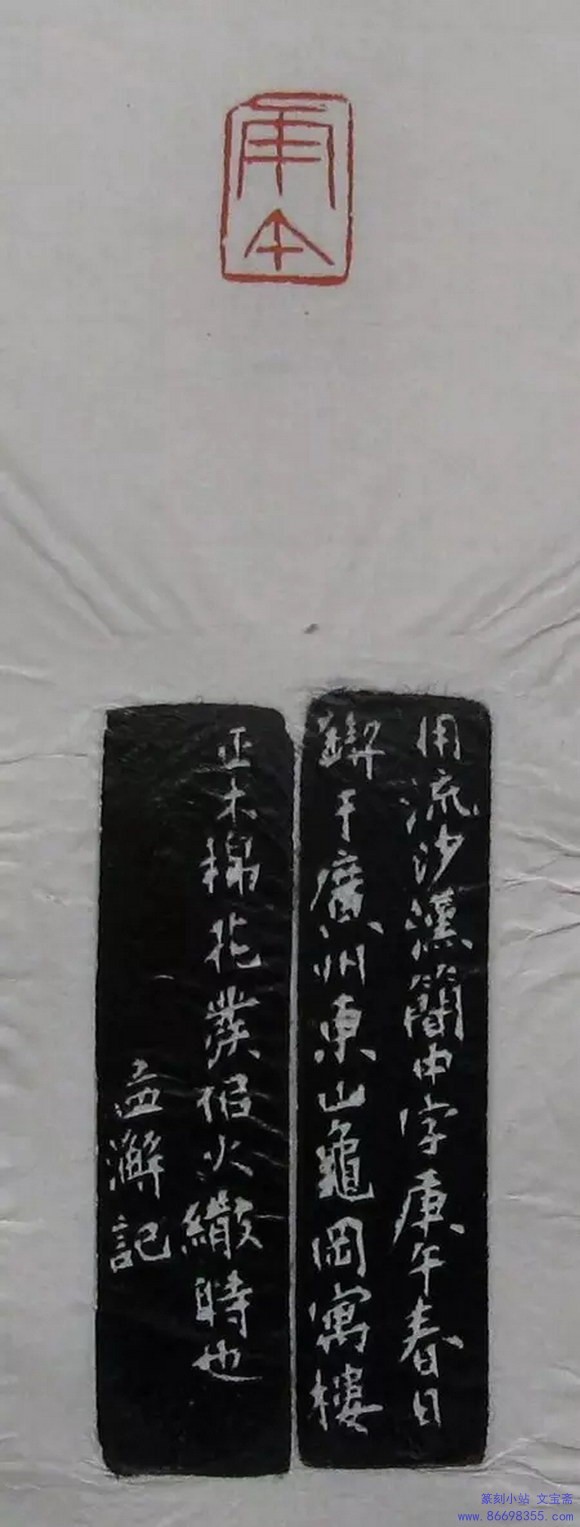 庚午
用流沙漢簡中字庚午春日
鍥于廣州東山龜岡寓樓
正木棉花發佀火繖時也
孟澥記
篆刻小站 文宝斋
www.86698355.com